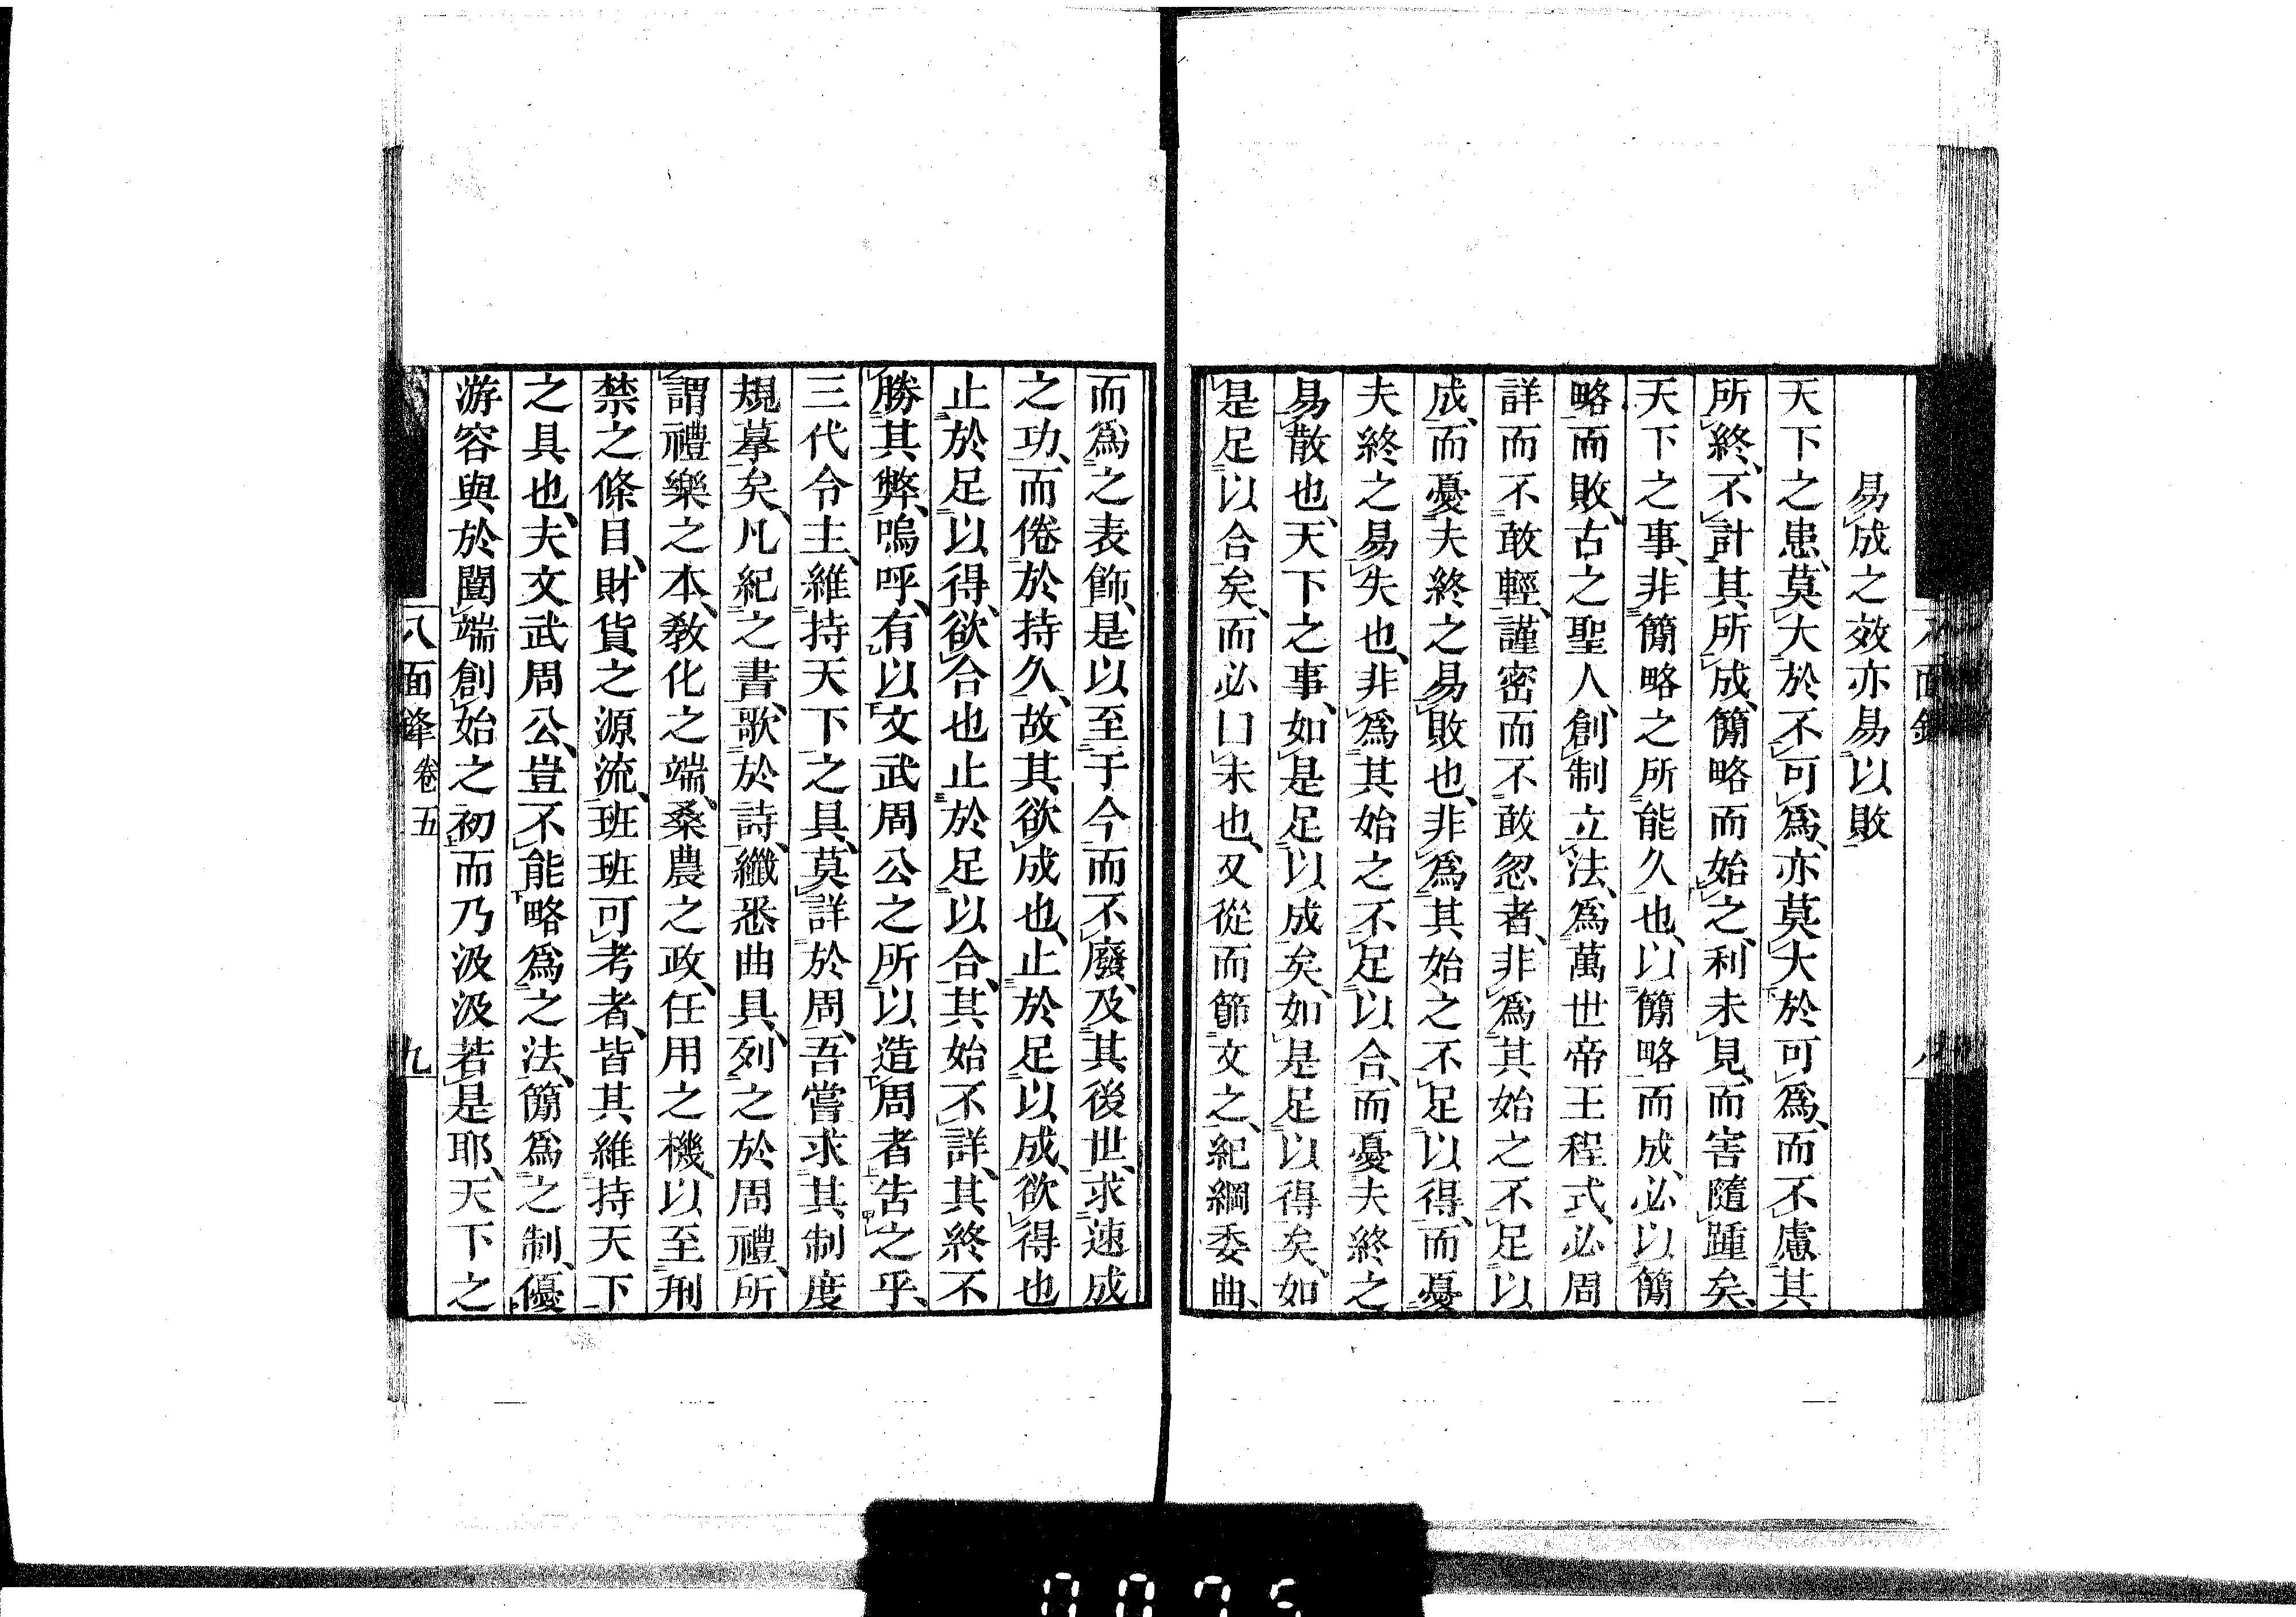 易成之效亦易以敗
天下之患、莫大於不可爲、亦莫大於可爲、而不慮其
所終、不計其所成、簡略而始之、利未見、而害隨踵矣、
天下之事、非簡略之所能久也、以簡略而成、必以簡
略而敗、古之聖人、創制立法、爲萬世帝王程式、必周
詳而不敢輕、謹密而不敢忽者、非爲其始之不足以
成、而憂夫終之易敗也、非爲其始之不足以得、而憂
夫終之易失也、非爲其始之不足以合、而憂夫終之
易散也、天下之事、如是足以成矣、如是足以得矣、如
是足以合矣、而必曰未也、又從而節文之、紀綱委曲、
而爲之表飾、是以至于今而不廢、及其後世、求速成
之功、而倦於持久、故其欲成也、止於足以成、欲得也
止於足以得、欲合也止於足以合、其始不詳、其終不
勝其弊、嗚呼、有以文武周公之所以造周者告之乎、
三代令主、維持天下之具、莫詳於周、吾嘗求其制度
規摹矣、凡紀之書、歌於詩、纖悉曲具、列之於周禮、所
謂禮樂之本、教化之端、桑農之政、任用之機、以至刑
禁之條目、財貨之源流、班班可考者、皆其維持天下
之具也、夫文武周公、豈不能略爲之法、簡爲之制、優
游容與於闓端創始之初、而乃汲汲若是耶、天下之
八面鋒 卷五 九